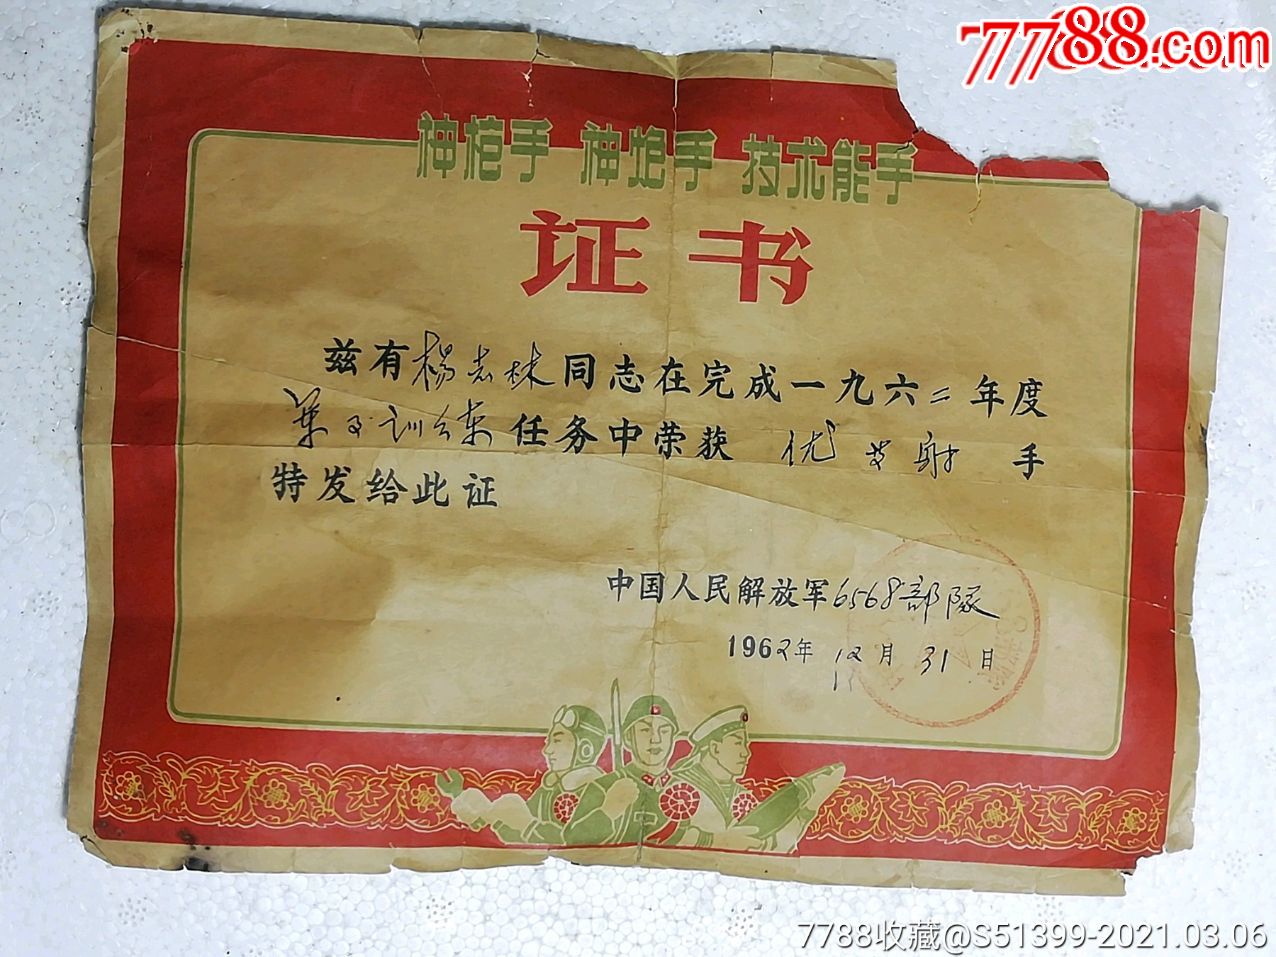 7788.com
神枪手 神炮手 技术能手
证书
兹有杨志林同志在完成一九六二年度
军事训练任务中荣获 优等射手
特发给此证
中国人民解放军6568部隊
1962年 12月 31日
7788收藏@S51399-2021.03.06